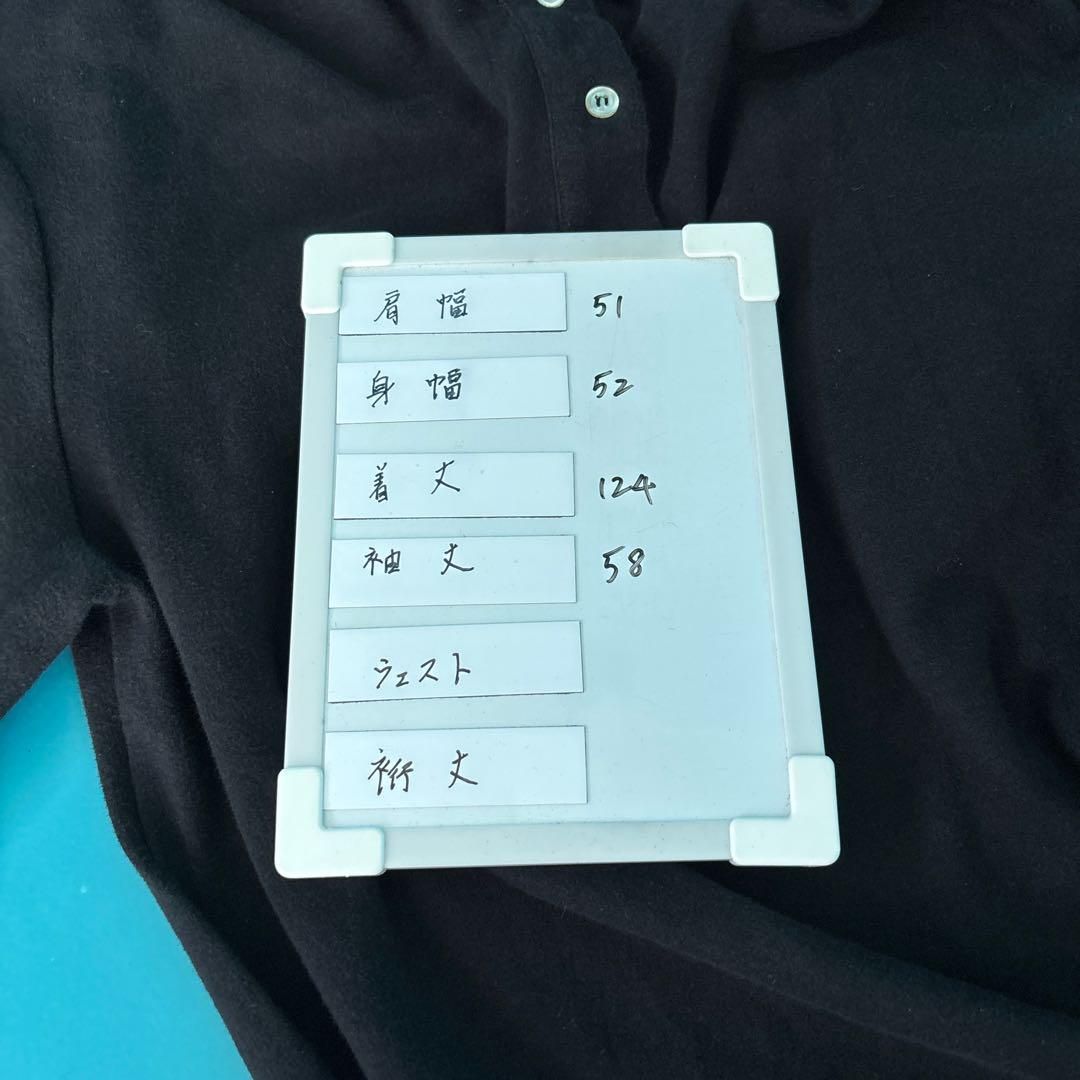 肩幅 51
身幅 52
着丈 124
袖丈 58
ウェスト
裄丈